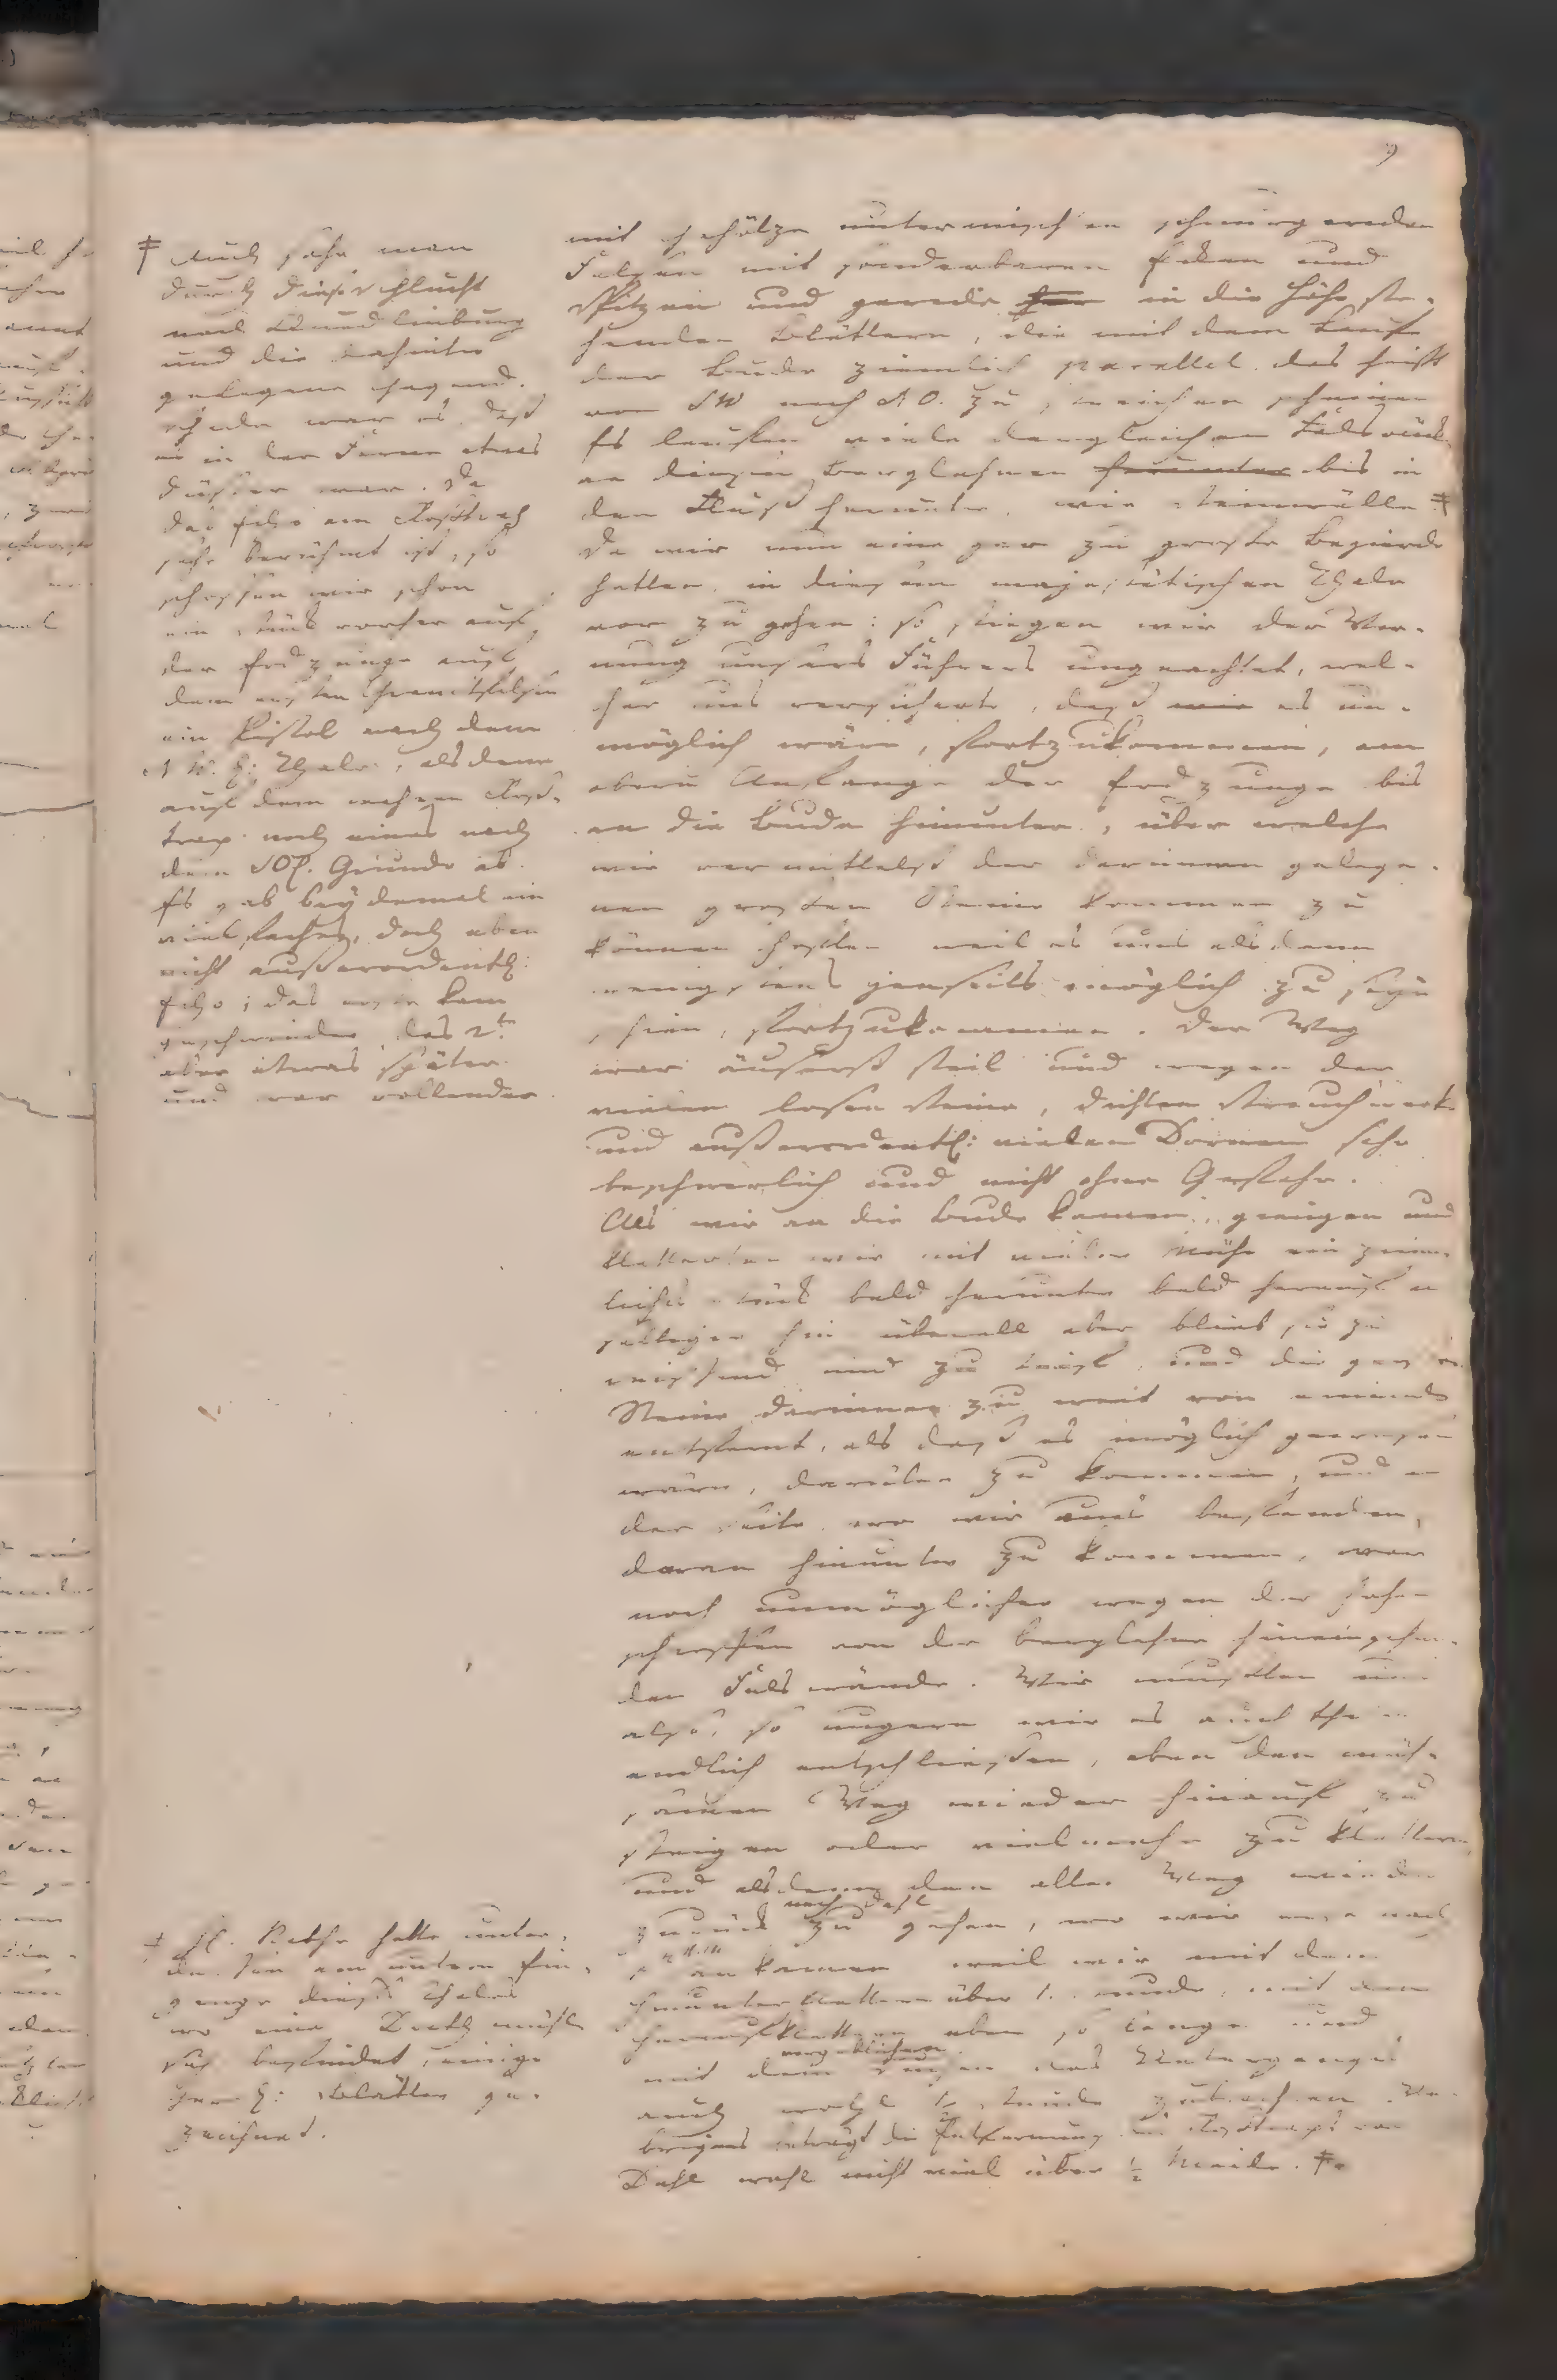 9
mit Gehölze untermischten schauervollen
Felsen mit sonderbaren Ecken und
Spitzen und gerade in die Höhe ste-
henden Blättern, die mit dem Laufe
der Bude ziemlich parallel, das heißt
von SW nach NO. zu streichen scheinen
Es laufen viele dergleichen Felsrücken
an diesen Berglehnen herunter bis in
den Fluß herunter, wie Steinwälle ‡
Da wir nun eine gar zu große Begierde
hatten, in diesem majestätischen Thale
vor zu gehen: so stiegen wir der War-
nung unsers Führers ungeachtet, wel-
cher uns versicherte, daß wir es un-
möglich wäre, fortzukommen, am
obern Anfange der Erdzunge bis
an die Bude hinunter, über welche
wir vermittelst der darinnen gelege-
nen großen Steine kommen zu
können hofften weil es uns alsdann
wenigstens jenseits möglich zu seyn
schien, fortzukommen. Der Weg
war äuserst steil und wegen der
vielen losen Steine, dichten Strauchwerk
und außerordentl: vielen Dornen sehr
beschwerlich und nicht ohne Gefahr.
Als wir an die Bude kamen, giengen und
kletterten wir mit vieler Mühe ein ziem-
liches Stück bald herunter bald herauf an
selbiger hin überall aber blieb sie zu
reissend und zu tief, und die großen
Steine darinnen zu weit von einander
entfernt, als daß es möglich gewesen
wäre, darüber zu kommen, und an
der Seite wo wir uns befanden,
daran hinunter zu kommen, war
noch unmöglicher wegen der jähen
schroffen von der Berglehne hineingehen-
den Felswände. Wir mußten uns
also, so ungern wir es auch thaten
endlich entschließen, eben den müh-
samen Weg wieder hinauf zu
steigen oder vielmehr zu klettern,
und alsdann den alten Weg wieder
zurück nach Dahl zu gehen, wo wir
ankamen weil wir mit dem
Hinunterklettern über 1. Stunde, mit dem
Heraufklettern eben so lange und
mit dem vergeblichen des
auch wohl ½ Stunde zubrachten. Ue-
brigens beträgt die Entfernung des Roßtraps von
Dahl wohl nicht viel über ½ Meile. ‡
‡ Auch sahe man
durch diese Schlucht
nach Quedlinburg
und die dahinter
gelegene Gegend.
Schade war es, daß
es in der Ferne etwas
düster war. Da
das Echo am Roßtrapp
sehr berühmt ist, so
schossen wir schon
ein Stück vorher auf
der Erdzunge auf
dem ersten Granitfelsen
ein Pistol nach dem
N W. l: Thale, alsdann
auf dem wahren Roß-
trap noch eines nach
dem SOl. Grunde ab.
Es gab beydemal ein
vielfaches, doch eben
nicht außerordentl:
Echo; das erste kam
geschwinder, das 2te
aber etwas später
und war rollender
‡ H. Nathe hatte unter-
dessen am untern Ein-
gange dieses Thales
wo eine Dratmühle
sich befindet, einige
Blätter ge-
zeichnet.